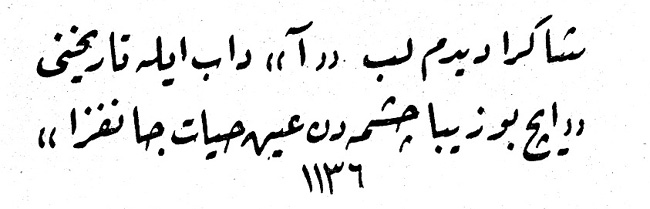 شاكرا ديدم لب «آ» داب ايله تاريخنى
«ايچ بو زيبا چشمه دن عين حيات جانفزا»
١١٣٦